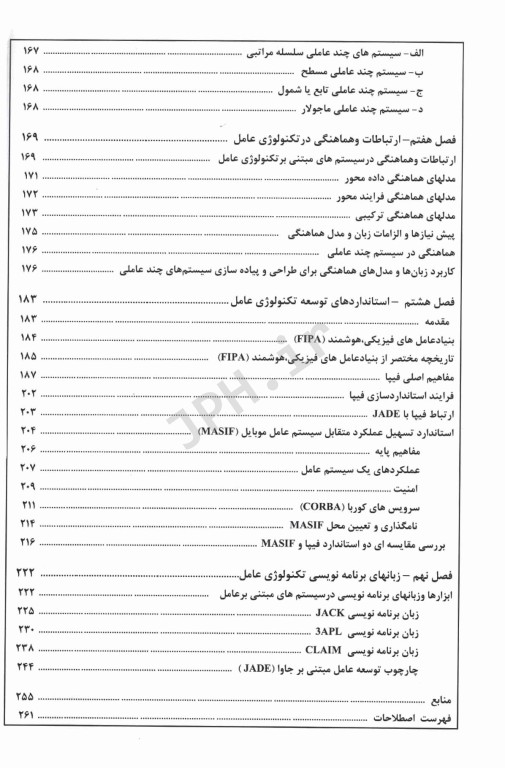 الف- سیستم های چند عاملی سلسله مراتبی ........ ۱۶۷
ب- سیستم چند عاملی مسطح ........ ۱۶۸
ج- سیستم چند عاملی تابع یا شمول ........ ۱۶۸
د- سیستم چند عاملی ماجولار ........ ۱۶۸
فصل هفتم- ارتباطات وهماهنگی درتکنولوژی عامل ........ ۱۶۹
ارتباطات وهماهنگی درسیستم های مبتنی برتکنولوژی عامل ........ ۱۶۹
مدلهای هماهنگی داده محور ........ ۱۷۱
مدلهای هماهنگی فرایند محور ........ ۱۷۲
مدلهای هماهنگی ترکیبی ........ ۱۷۳
پیش نیازها و الزامات زبان و مدل هماهنگی ........ ۱۷۵
هماهنگی در سیستم چند عاملی ........ ۱۷۶
کاربرد زبان‌ها و مدل‌های هماهنگی برای طراحی و پیاده سازی سیستم‌های چند عاملی ........ ۱۷۶
فصل هشتم - استانداردهای توسعه تکنولوژی عامل ........ ۱۸۳
مقدمه ........ ۱۸۳
بنیادعامل های فیزیکی،هوشمند (FIPA) ........ ۱۸۴
تاریخچه مختصر از بنیادعامل های فیزیکی،هوشمند (FIPA) ........ ۱۸۵
مفاهیم اصلی فیپا ........ ۱۸۷
فرایند استانداردسازی فیپا ........ ۲۰۲
ارتباط فیپا با JADE ........ ۲۰۳
استاندارد تسهیل عملکرد متقابل سیستم عامل موبایل (MASIF) ........ ۲۰۴
مفاهیم پایه ........ ۲۰۶
عملکردهای یک سیستم عامل ........ ۲۰۷
امنیت ........ ۲۰۹
سرویس های کوربا (CORBA) ........ ۲۱۱
نامگذاری و تعیین محل MASIF ........ ۲۱۴
بررسی مقایسه ای دو استاندارد فیپا و MASIF ........ ۲۱۶
فصل نهم - زبانهای برنامه نویسی تکنولوژی عامل ........ ۲۲۲
ابزارها وزبانهای برنامه نویسی درسیستم های مبتنی برعامل ........ ۲۲۲
زبان برنامه نویسی JACK ........ ۲۲۵
زبان برنامه نویسی 3APL ........ ۲۳۰
زبان برنامه نویسی CLAIM ........ ۲۳۸
چارچوب توسعه عامل مبتنی بر جاوا (JADE) ........ ۲۴۴
منابع ........ ۲۵۵
فهرست اصطلاحات ........ ۲۶۱
JPH.ir